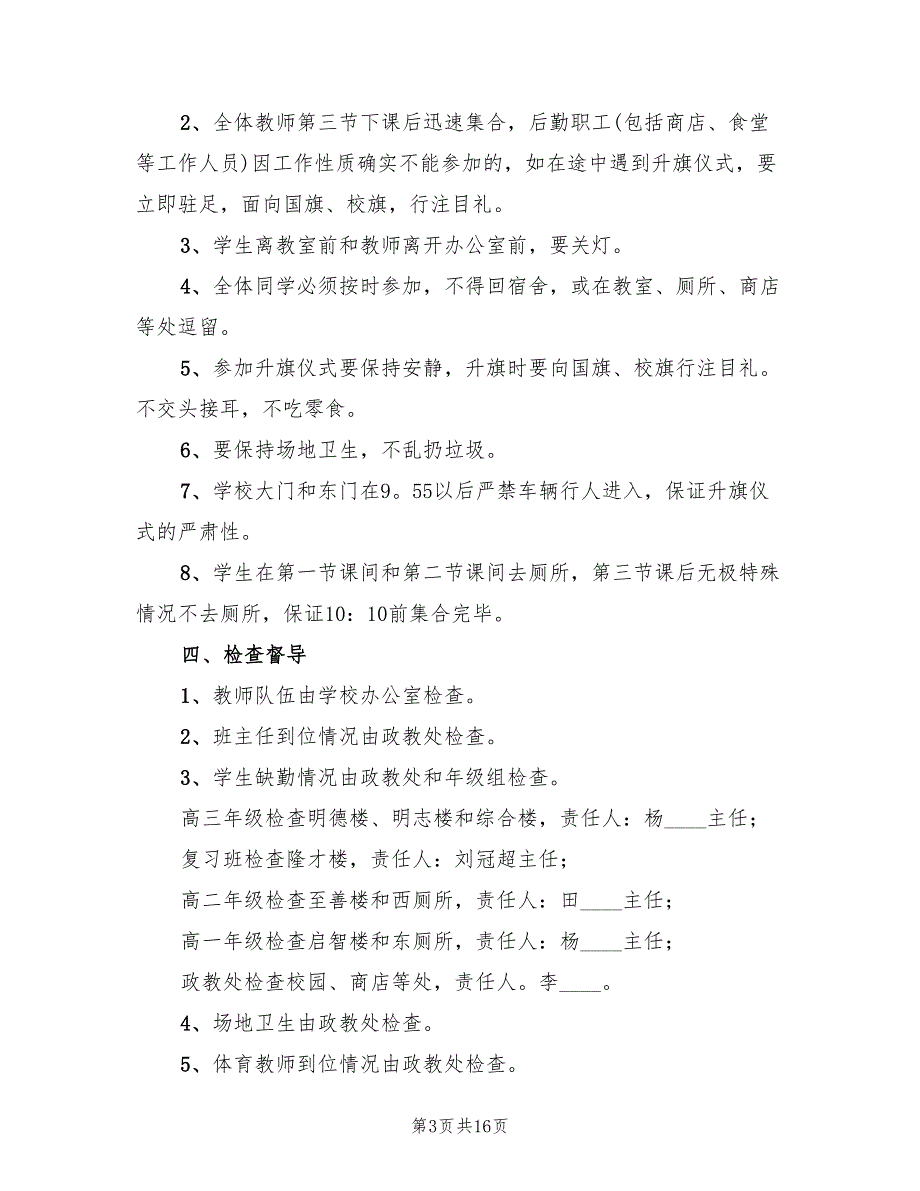 2、全体教师第三节下课后迅速集合，后勤职工(包括商店、食堂
等工作人员)因工作性质确实不能参加的，如在途中遇到升旗仪式，要
立即驻足，面向国旗、校旗，行注目礼。
3、学生离教室前和教师离开办公室前，要关灯。
4、全体同学必须按时参加，不得回宿舍，或在教室、厕所、商店
等处逗留。
5、参加升旗仪式要保持安静，升旗时要向国旗、校旗行注目礼。
不交头接耳，不吃零食。
6、要保持场地卫生，不乱扔垃圾。
7、学校大门和东门在9。55以后严禁车辆行人进入，保证升旗仪
式的严肃性。
8、学生在第一节课间和第二节课间去厕所，第三节课后无极特殊
情况不去厕所，保证10：10前集合完毕。
四、检查督导
1、教师队伍由学校办公室检查。
2、班主任到位情况由政教处检查。
3、学生缺勤情况由政教处和年级组检查。
高三年级检查明德楼、明志楼和综合楼，责任人：杨____主任；
复习班检查隆才楼，责任人：刘冠超主任；
高二年级检查至善楼和西厕所，责任人：田____主任；
高一年级检查启智楼和东厕所，责任人：杨____主任；
政教处检查校园、商店等处，责任人。李____。
4、场地卫生由政教处检查。
5、体育教师到位情况由政教处检查。
第3页共16页